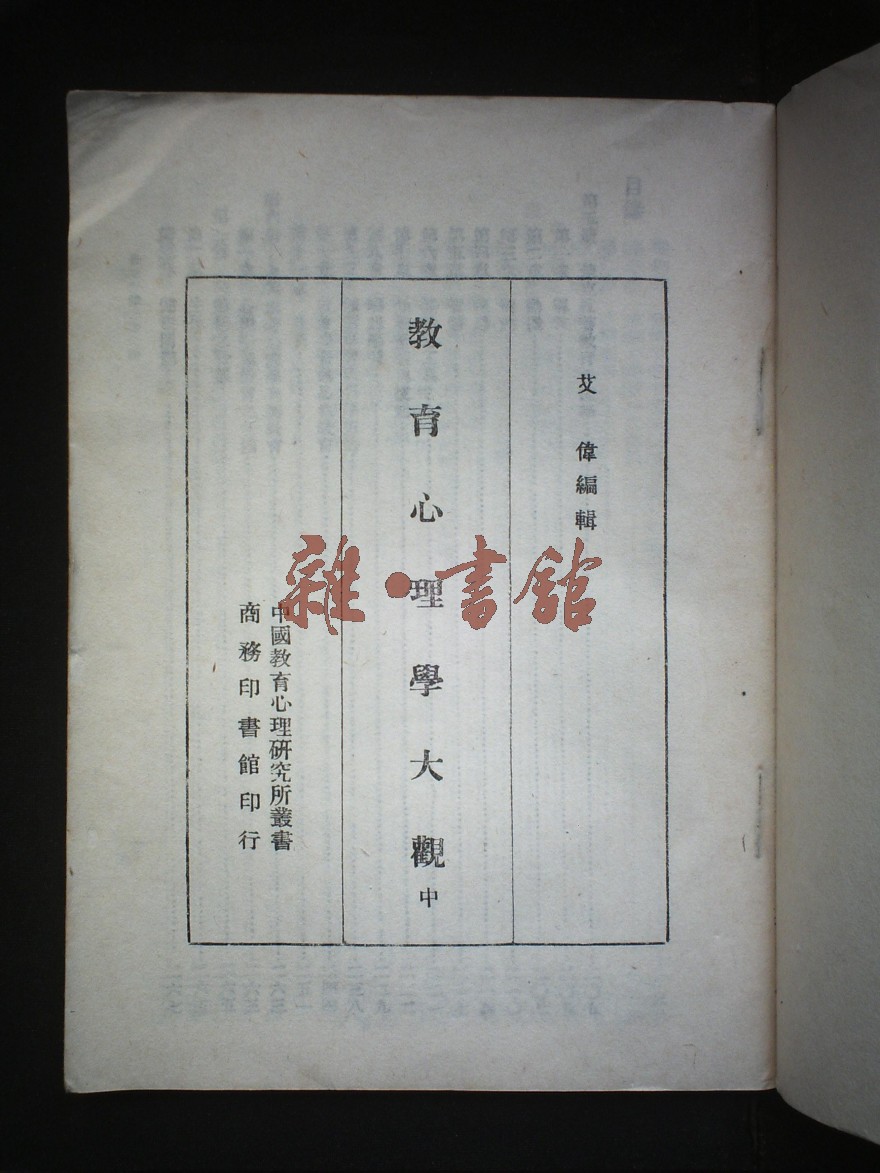 艾偉編輯
教育心理學大觀 中
中國教育心理研究所叢書
商務印書館印行
雜·書館